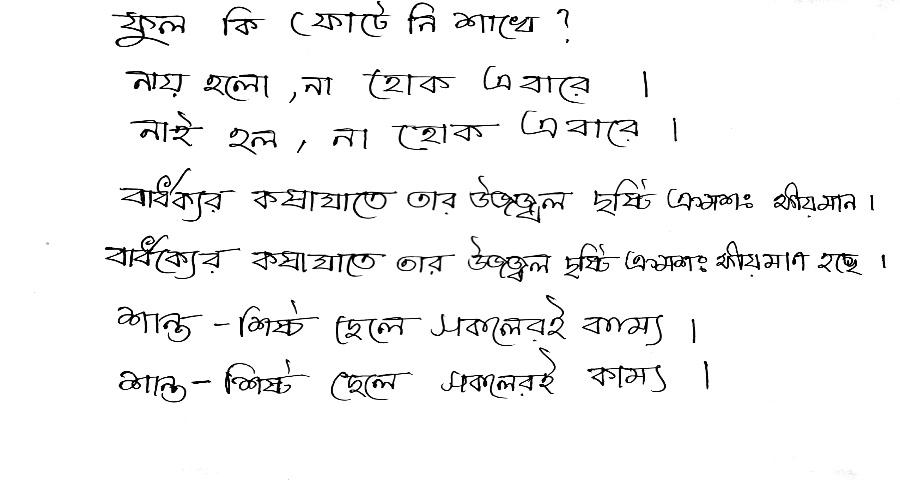 ফুল কি ফোটে নি শাখে ?
নায় হলো , না হোক এবারে ।
নাই হল , না হোক এবারে ।
বার্ধক্যর কষাঘাতে তার উজ্জ্বল দৃষ্টি ক্রমশঃ ক্ষীয়মান ।
বার্ধক্যের কষাঘাতে তার উজ্জ্বল দৃষ্টি ক্রমশঃ ক্ষীয়মাণ হচ্ছে ।
শান্ত - শিষ্ট ছেলে সকলেরই কাম্য ।
শান্ত - শিষ্ট ছেলে সকলেরই কাম্য ।